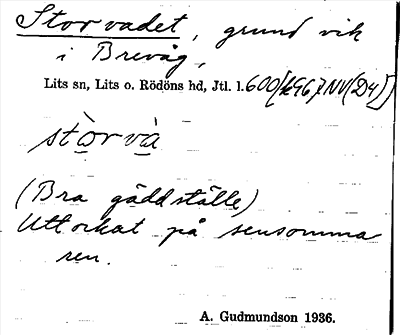 Storvadet, grund vik
i Brevåg,
Lits sn, Lits o. Rödöns hd, Jtl. l.
stò̱rvà̱
(Bra gäddställe)
Uttorkat på sensomma
ren.
A. Gudmundson 1936.